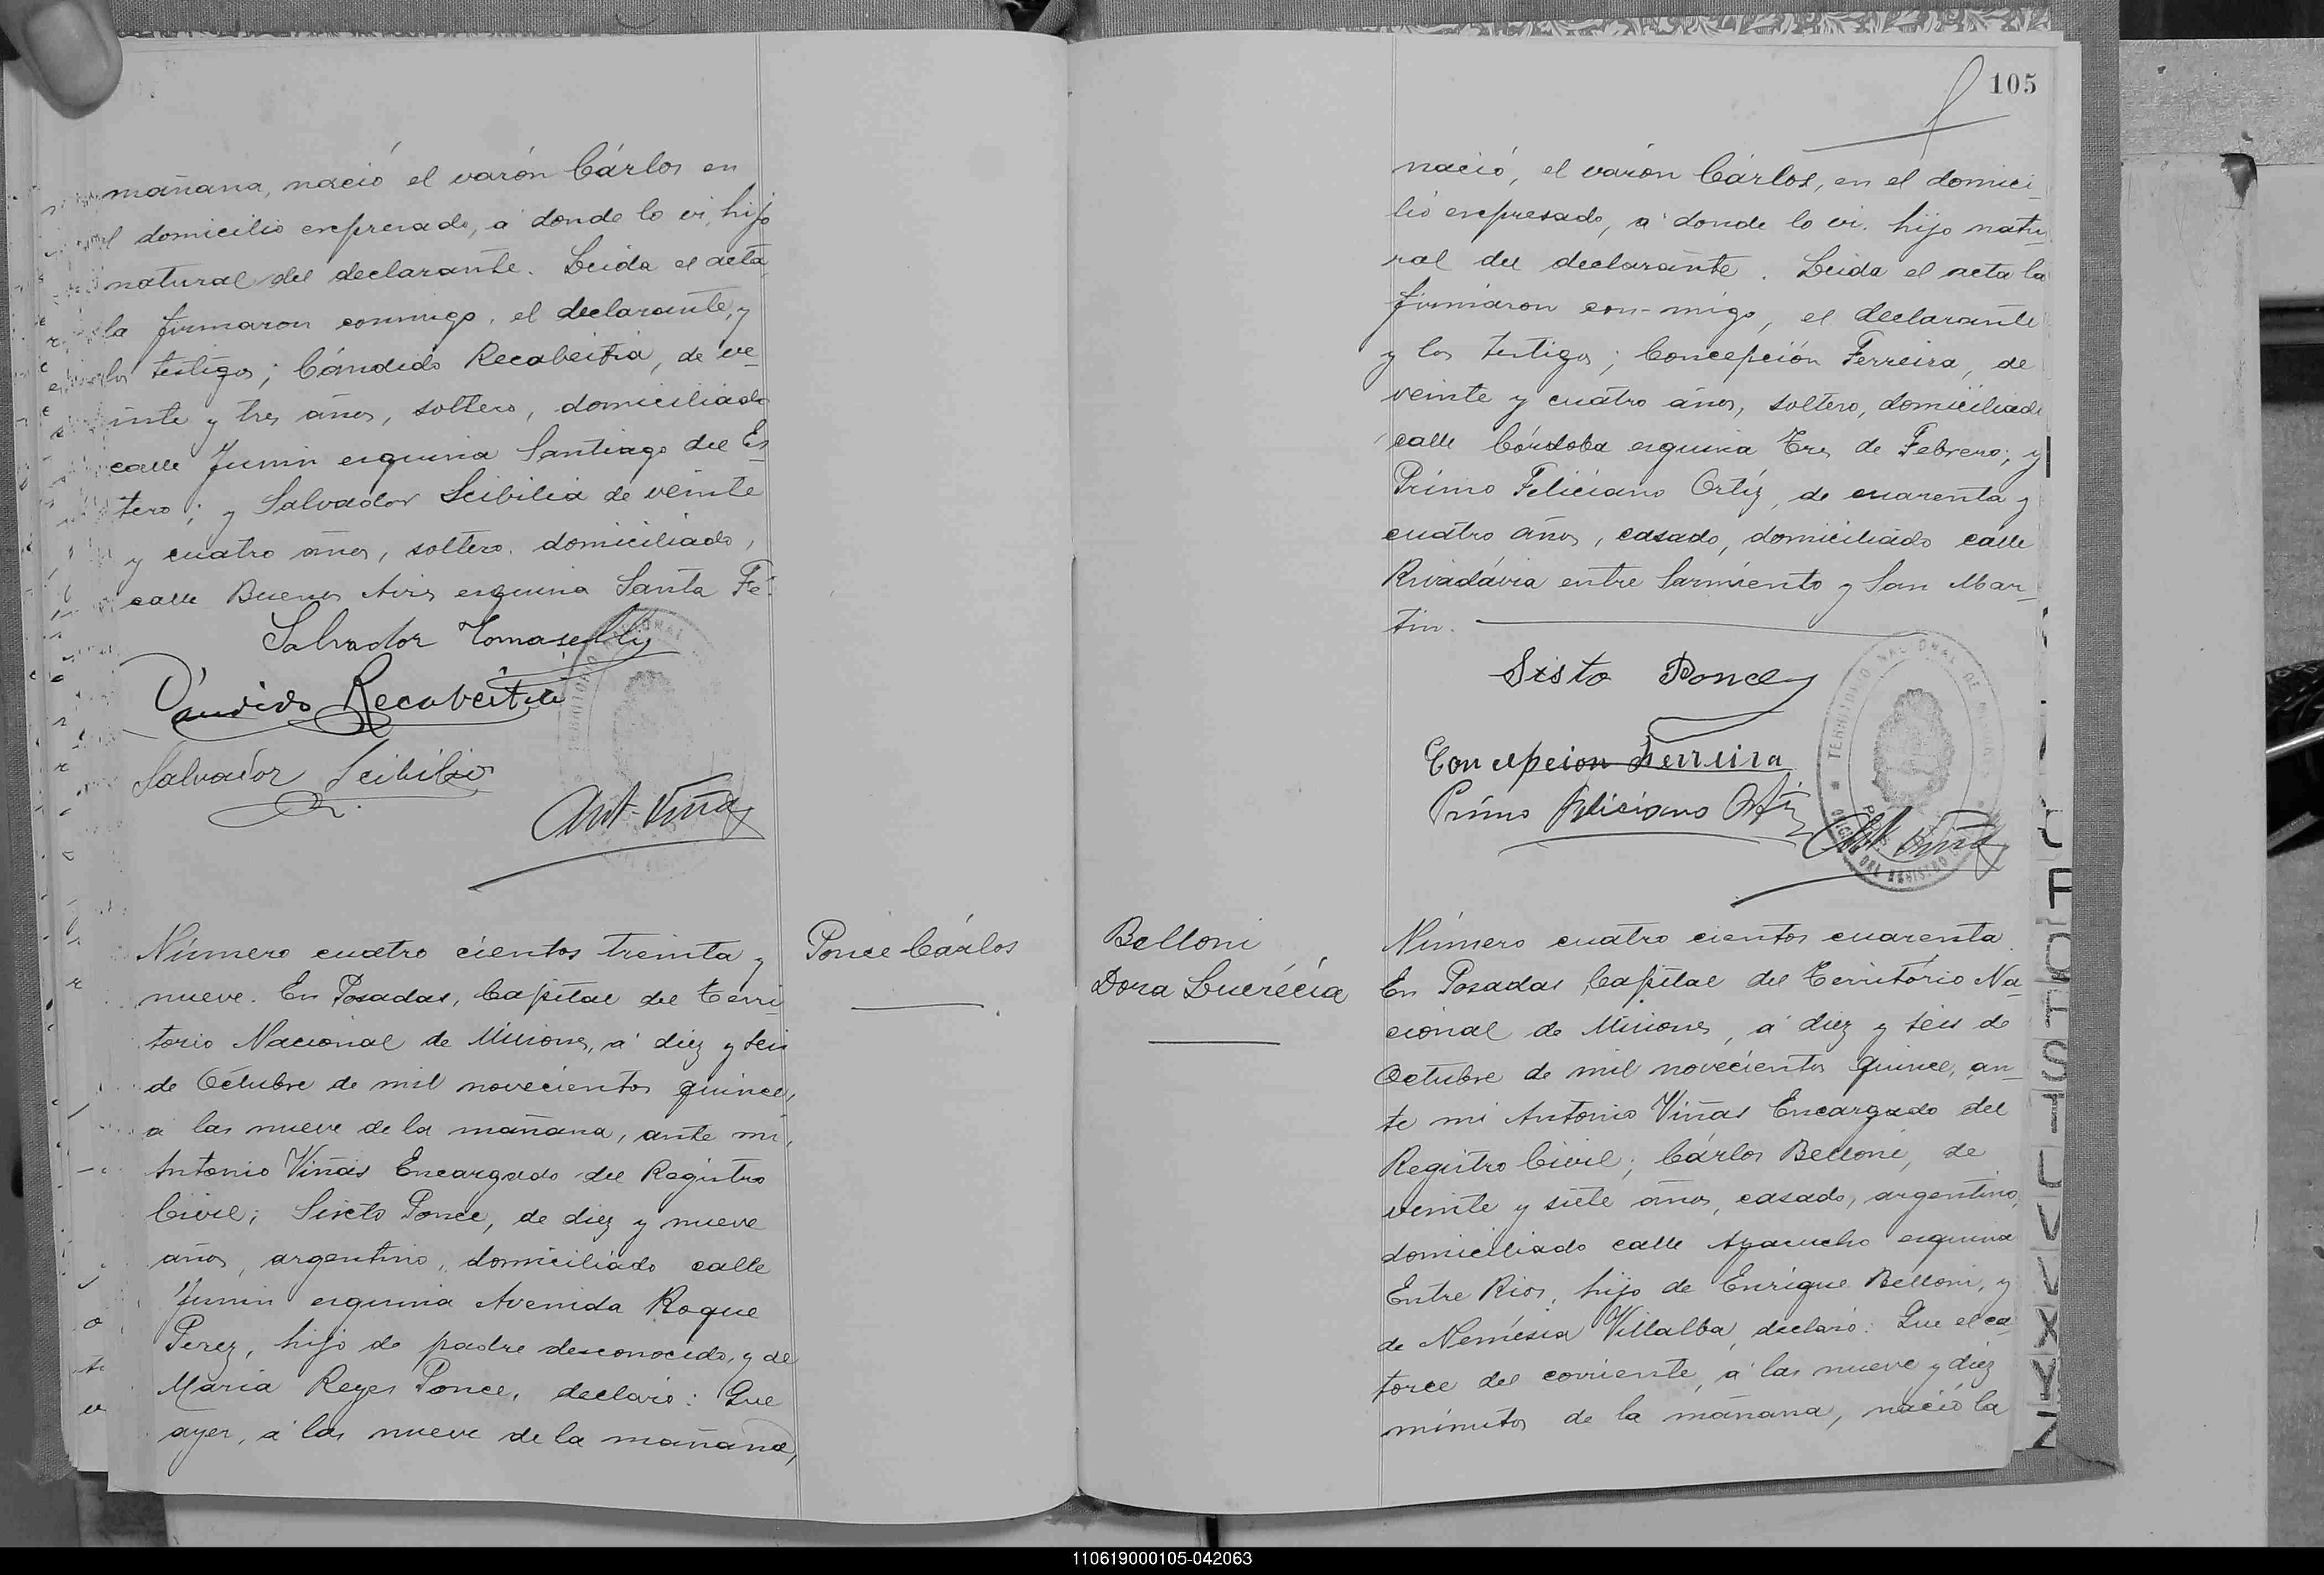 mañana, nació el varón Cárlos en
el domicilio expresado, á donde lo vi, hijo
natural del declarante. Leida el acta
la firmaron conmigo, el declarante, y
los testigos; Cándido Recabeitia, de ve-
inte y tres años, soltero, domiciliado
calle Junin esquina Santiago del Es-
tero; y Salvador Scibilia de veinte
y cuatro años, soltero, domiciliado,
calle Buenos Aires esquina Santa Fé.
Salvador Tomaselli
Cándido Recabeitia
Salvador Scibilia
Ant. Viñas
Número cuatro cientos treinta y
nueve. En Posadas, Capital del Terri-
torio Nacional de Misiones, á diez y seis
de Octubre de mil novecientos quince,
a las nueve de la mañana, ante mi,
Antonio Viñas Encargado del Registro
Civil; Sixto Ponce, de diez y nueve
años, argentino, domiciliado calle
Junin esquina Avenida Roque
Perez, hijo de padre desconocido, y de
Maria Reyes Ponce, declaró: Que
ayer, á las nueve de la mañana,
Ponce Cárlos
105
nació, el varón Cárlos, en el domici-
lio expresado, á donde lo vi, hijo natu-
ral del declarante. Leida el acta la
firmaron con-migo, el declarante
y los testigos; Concepción Ferreira, de
veinte y cuatro años, soltero, domiciliado
calle Córdoba esquina Tres de Febrero; y
Primo Feliciano Ortiz, de cuarenta y
cuatro años, casado, domiciliado calle
Rivadávia entre Sarmiento y San Mar-
tin.
Sisto Ponce
Concepcion Ferreira
Primo Feliciano Ortiz
TERRITORIO NACIONAL DE MISIONES
DEL REGISTRO
Ant. Viñas
Belloni
Dora Lucrécia
Número cuatro cientos cuarenta.
En Posadas Capital del Território Na-
cional de Misiones, á diez y seis de
Octubre de mil novecientos quince, an-
te mi Antonio Viñas Encargado del
Registro Civil; Cárlos Belloni, de
veinte y siete años, casado, argentino,
domiciliado calle Ayacucho esquina
Entre Rios, hijo de Enrique Belloni, y
de Nemésia Villalba, declaró: Que el ca-
torce del corriente, á las nueve y diez
minutos de la mañana, nació la
S
T
U
V
X
Y
Z
110619000105-042063